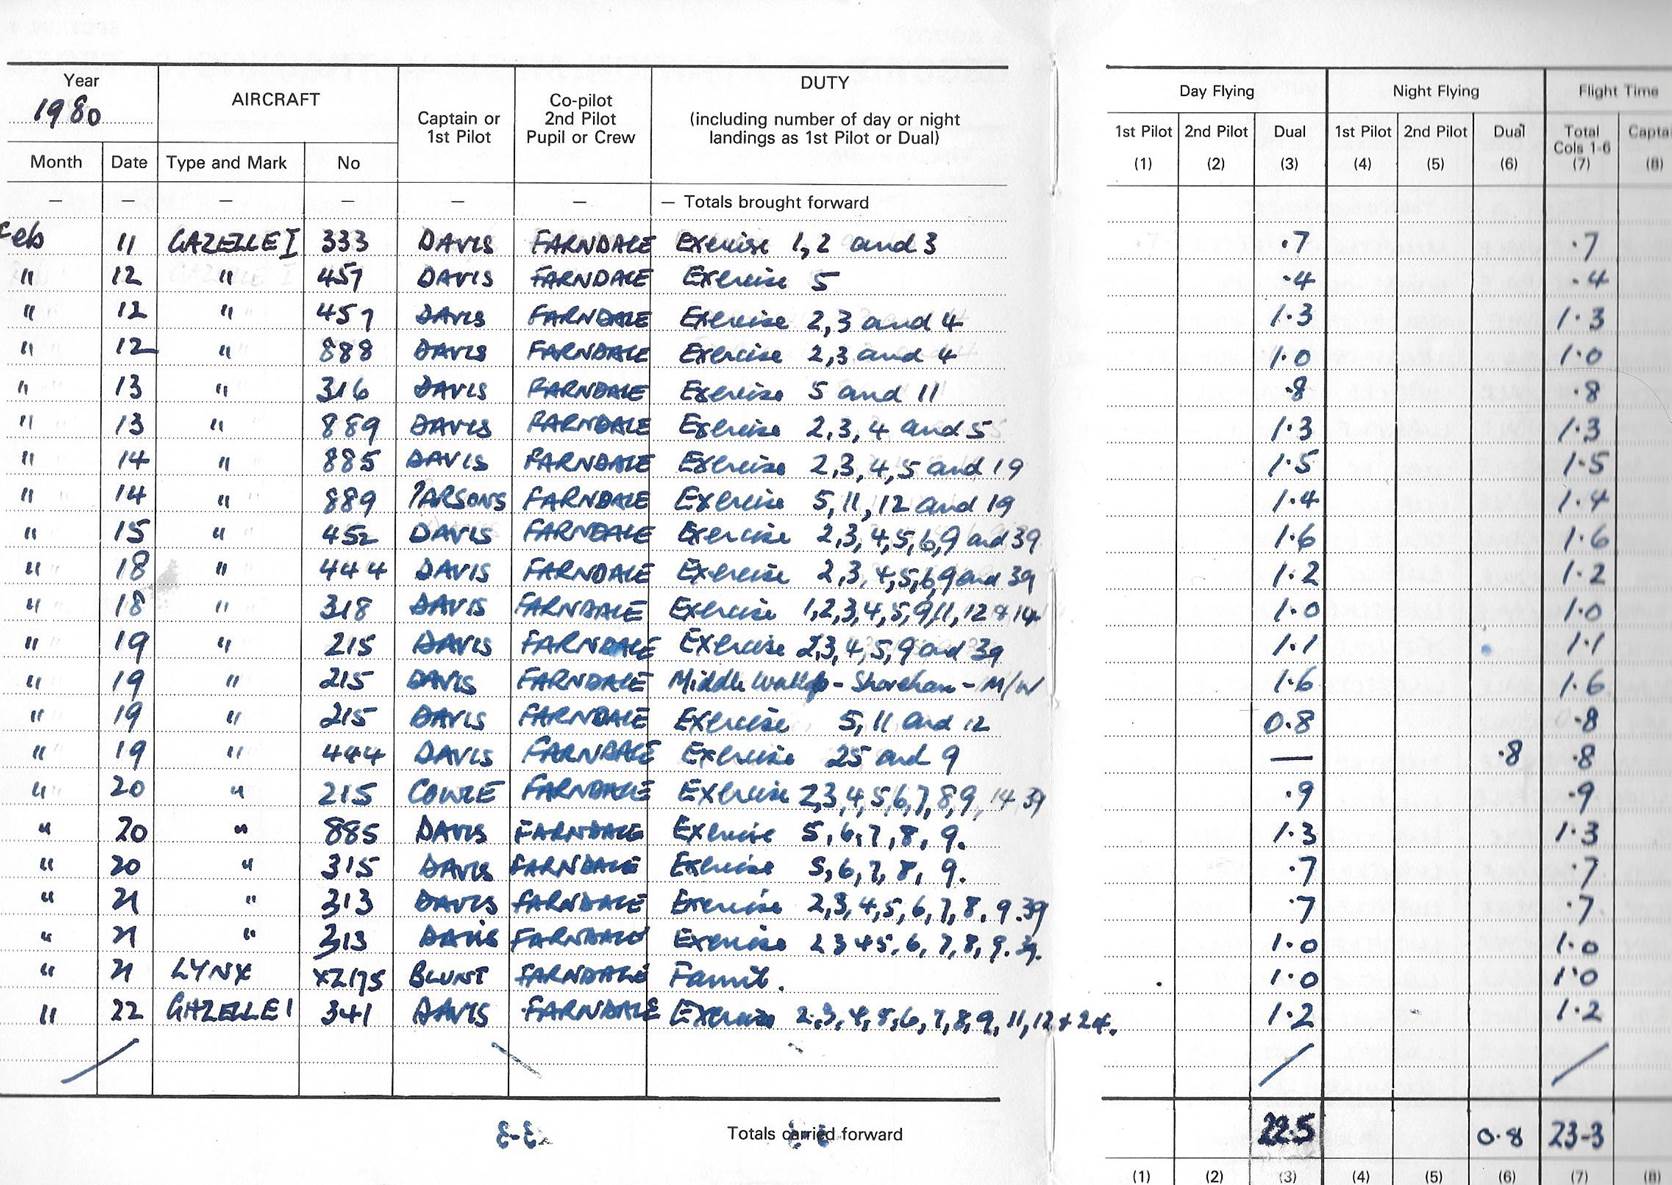 Year
1980
AIRCRAFT
Captain or
1st Pilot
Co-pilot
2nd Pilot
Pupil or Crew
DUTY
(including number of day or night
landings as 1st Pilot or Dual)
Day Flying
Night Flying
Flight Time
Month Date Type and Mark No
1st Pilot 2nd Pilot Dual 1st Pilot 2nd Pilot Dual Total
Cols 1-6 Capta
(1) (2) (3) (4) (5) (6) (7) (8)
— — — — — — — Totals brought forward
Feb 11 GAZELLE I 333 DAVIS FARNDALE Exercise 1, 2 and 3 .7 .7
" 12 " 457 DAVIS FARNDALE Exercise 5 .4 .4
" 12 " 457 DAVIS FARNDALE Exercise 2, 3 and 4 1.3 1.3
" 12 " 888 DAVIS FARNDALE Exercise 2, 3 and 4 1.0 1.0
" 13 " 316 DAVIS FARNDALE Exercise 5 and 11 .8 .8
" 13 " 889 DAVIS FARNDALE Exercise 2, 3, 4 and 5 1.3 1.3
" 14 " 885 DAVIS FARNDALE Exercise 2, 3, 4, 5 and 19 1.5 1.5
" 14 " 889 PARSONS FARNDALE Exercise 5, 11, 12 and 19 1.4 1.4
" 15 " 452 DAVIS FARNDALE Exercise 2, 3, 4, 5, 6, 9 and 39 1.6 1.6
" 18 " 444 DAVIS FARNDALE Exercise 2, 3, 4, 5, 6, 9 and 39 1.2 1.2
" 18 " 318 DAVIS FARNDALE Exercise 1, 2, 3, 4, 5, 9, 11, 12 & 14 1.0 1.0
" 19 " 215 DAVIS FARNDALE Exercise 2, 3, 4, 5, 9 and 39 1.1 1.1
" 19 " 215 DAVIS FARNDALE Middle Wallop - Shoreham - M/W 1.6 1.6
" 19 " 215 DAVIS FARNDALE Exercise 5, 11 and 12 0.8 .8
" 19 " 444 DAVIS FARNDALE Exercise 25 and 9 — .8 .8
" 20 " 215 FARNDALE Exercise 2, 3, 4, 5, 6, 7, 8, 9, 14 39 .9 .9
" 20 " 885 DAVIS FARNDALE Exercise 5, 6, 7, 8, 9. 1.3 1.3
" 20 " 315 DAVIS FARNDALE Exercise 5, 6, 7, 8, 9. .7 .7
" 21 " 313 DAVIS FARNDALE Exercise 2, 3, 4, 5, 6, 7, 8, 9. 39 .7 .7
" 21 " 313 DAVIS FARNDALE Exercise 2 3 4 5, 6, 7, 8, 9. 39. 1.0 1.0
" 21 LYNX XZ175 BLUNT FARNDALE Famil. 1.0 1.0
" 22 GAZELLE I 341 DAVIS FARNDALE Exercise 2, 3, 4, 5, 6, 7, 8, 9, 11, 12 + 24. 1.2 1.2
Totals carried forward 22.5 0.8 23-3
(1) (2) (3) (4) (5) (6) (7) (8)